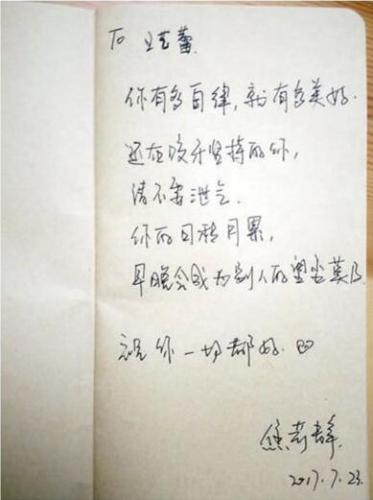 To 王艺蕾
你有多自律，就有多美好.
还在咬牙坚持的你，
请不要泄气.
你的日积月累，
早晚会成为别人的望尘莫及
祝你一切都好.
2017.7.23.